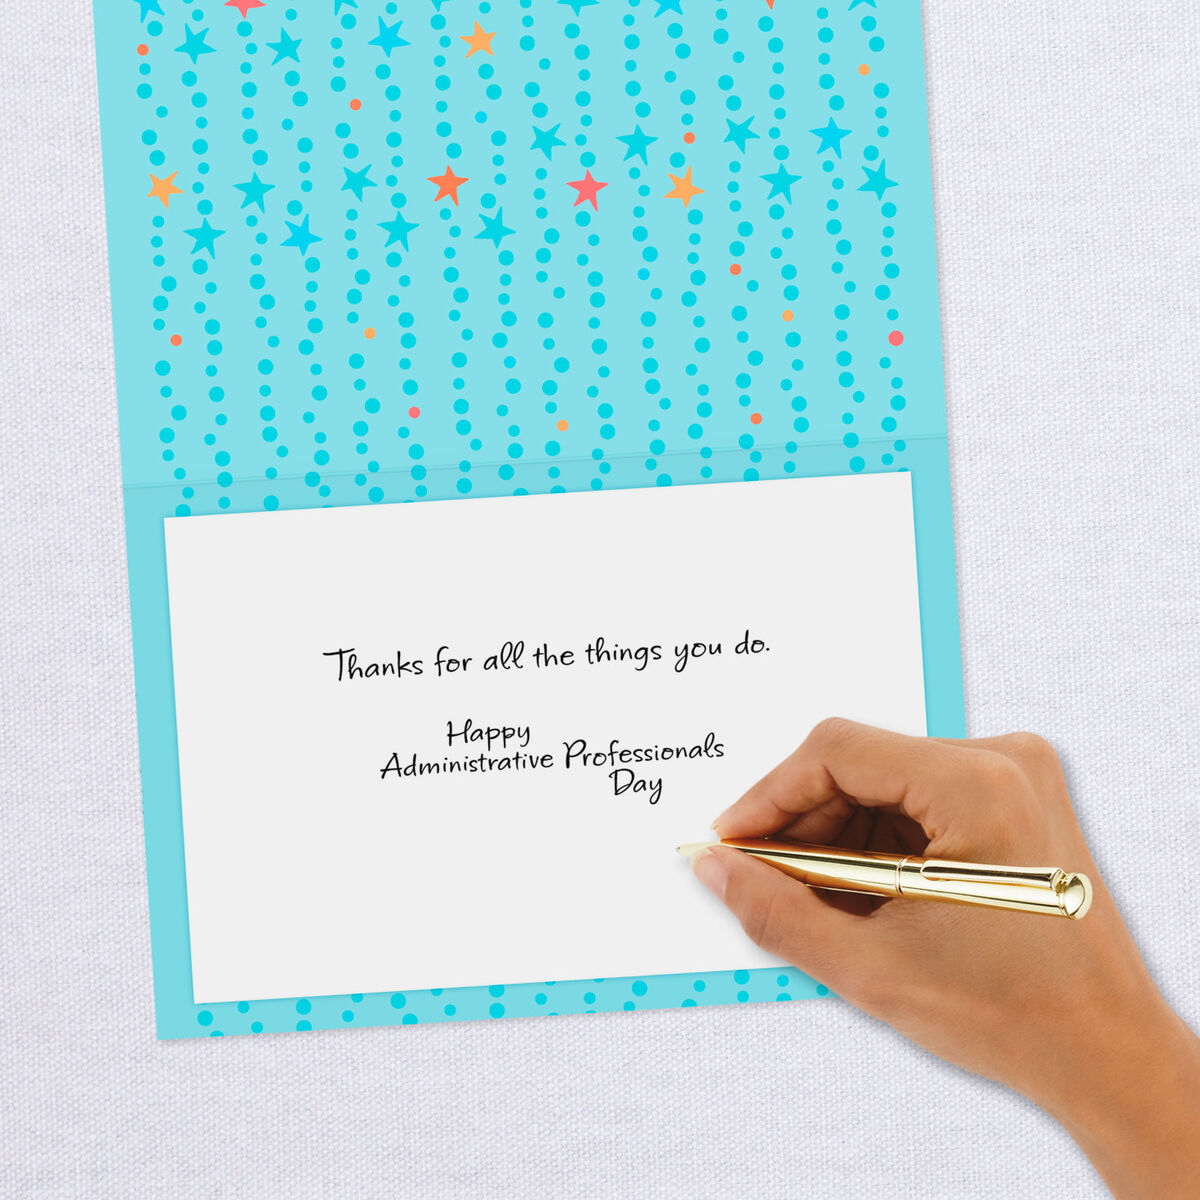 Thanks for all the things you do.
Happy
Administrative Professionals
Day